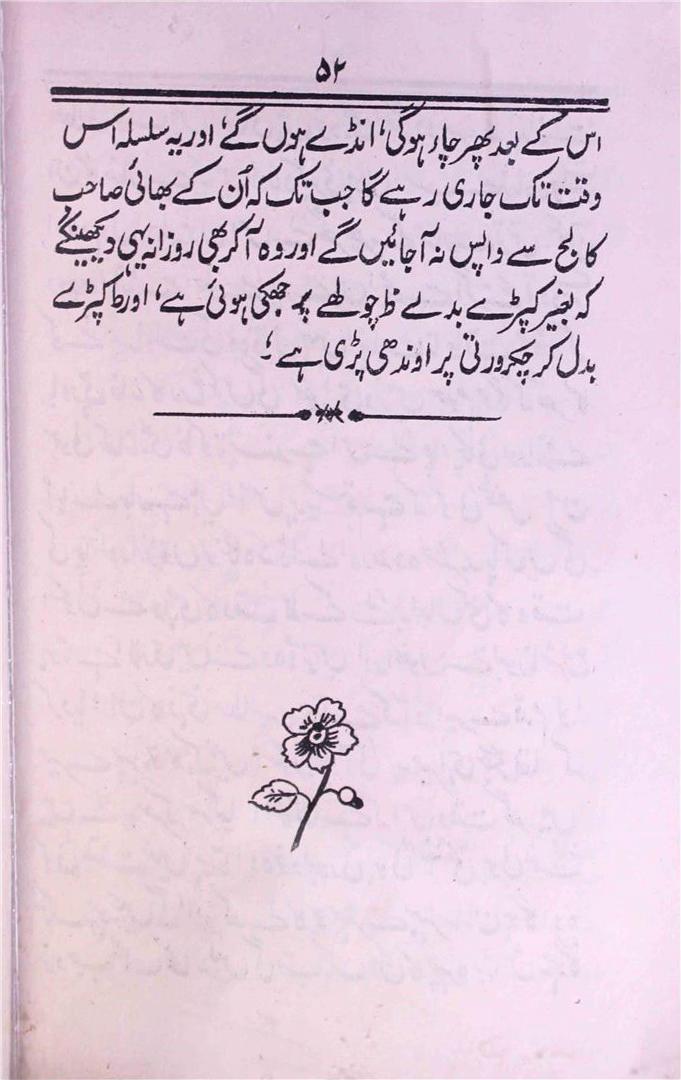 ۵۲
اس کے بعد پھر چار ہوگی، انڈے ہوں گے، اور یہ سلسلہ اس
وقت تک جاری رہے گا جب تک کہ اُن کے بھائی صاحب
کالج سے واپس نہ آجائیں گے اور وہ آکر بھی روزانہ یہی دیکھینگے
کہ بغیر کپڑے بدلے ط چولھے پر جھکی ہوئی ہے، اور ط کپڑے
بدل کر چکرورتی پر اوندھی پڑی ہے ؛